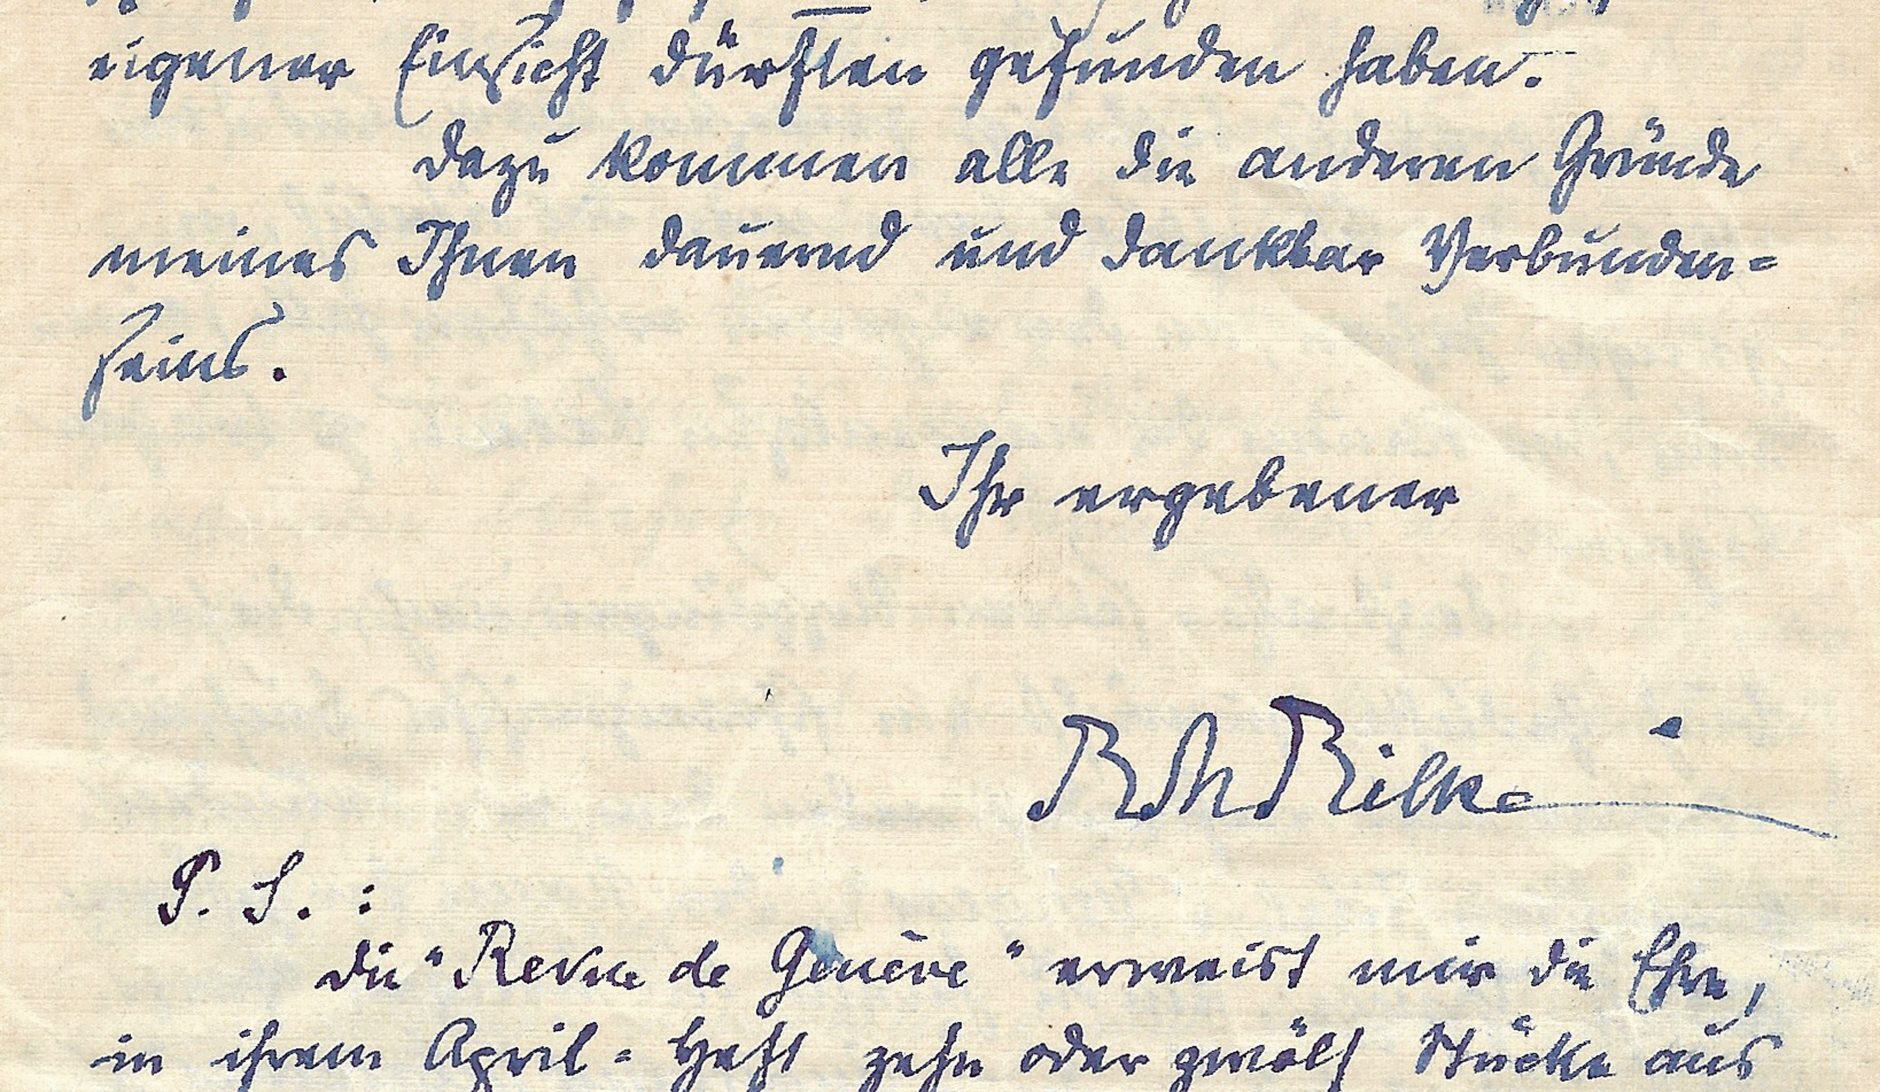 eigener Einsicht dürften gefunden haben.
Dazu kommen alle die anderen Gründe
meines Ihnen dauernd und dankbar Verbunden-
seins.
Ihr ergebener
RMRilke
P. S. :
Die "Revue de Genève" erweist mir die Ehre,
in ihrem April-Heft zehn oder zwölf Stücke aus